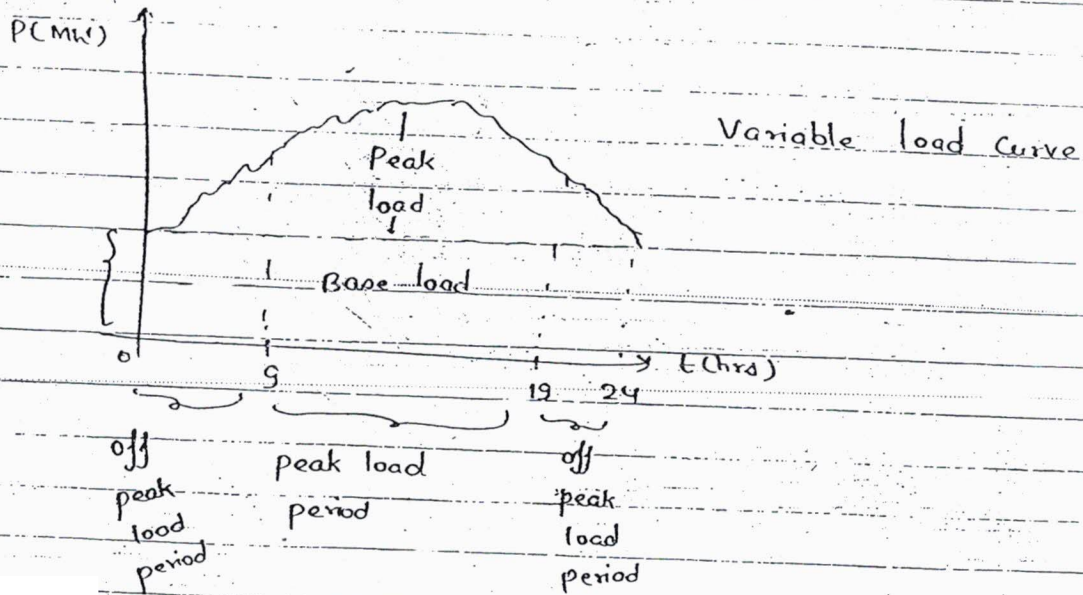 P(MW)
Variable load curve
Peak
load
Base load
0
9
19
24
t(hrs)
off
peak
load
period
peak load
period
off
peak
load
period